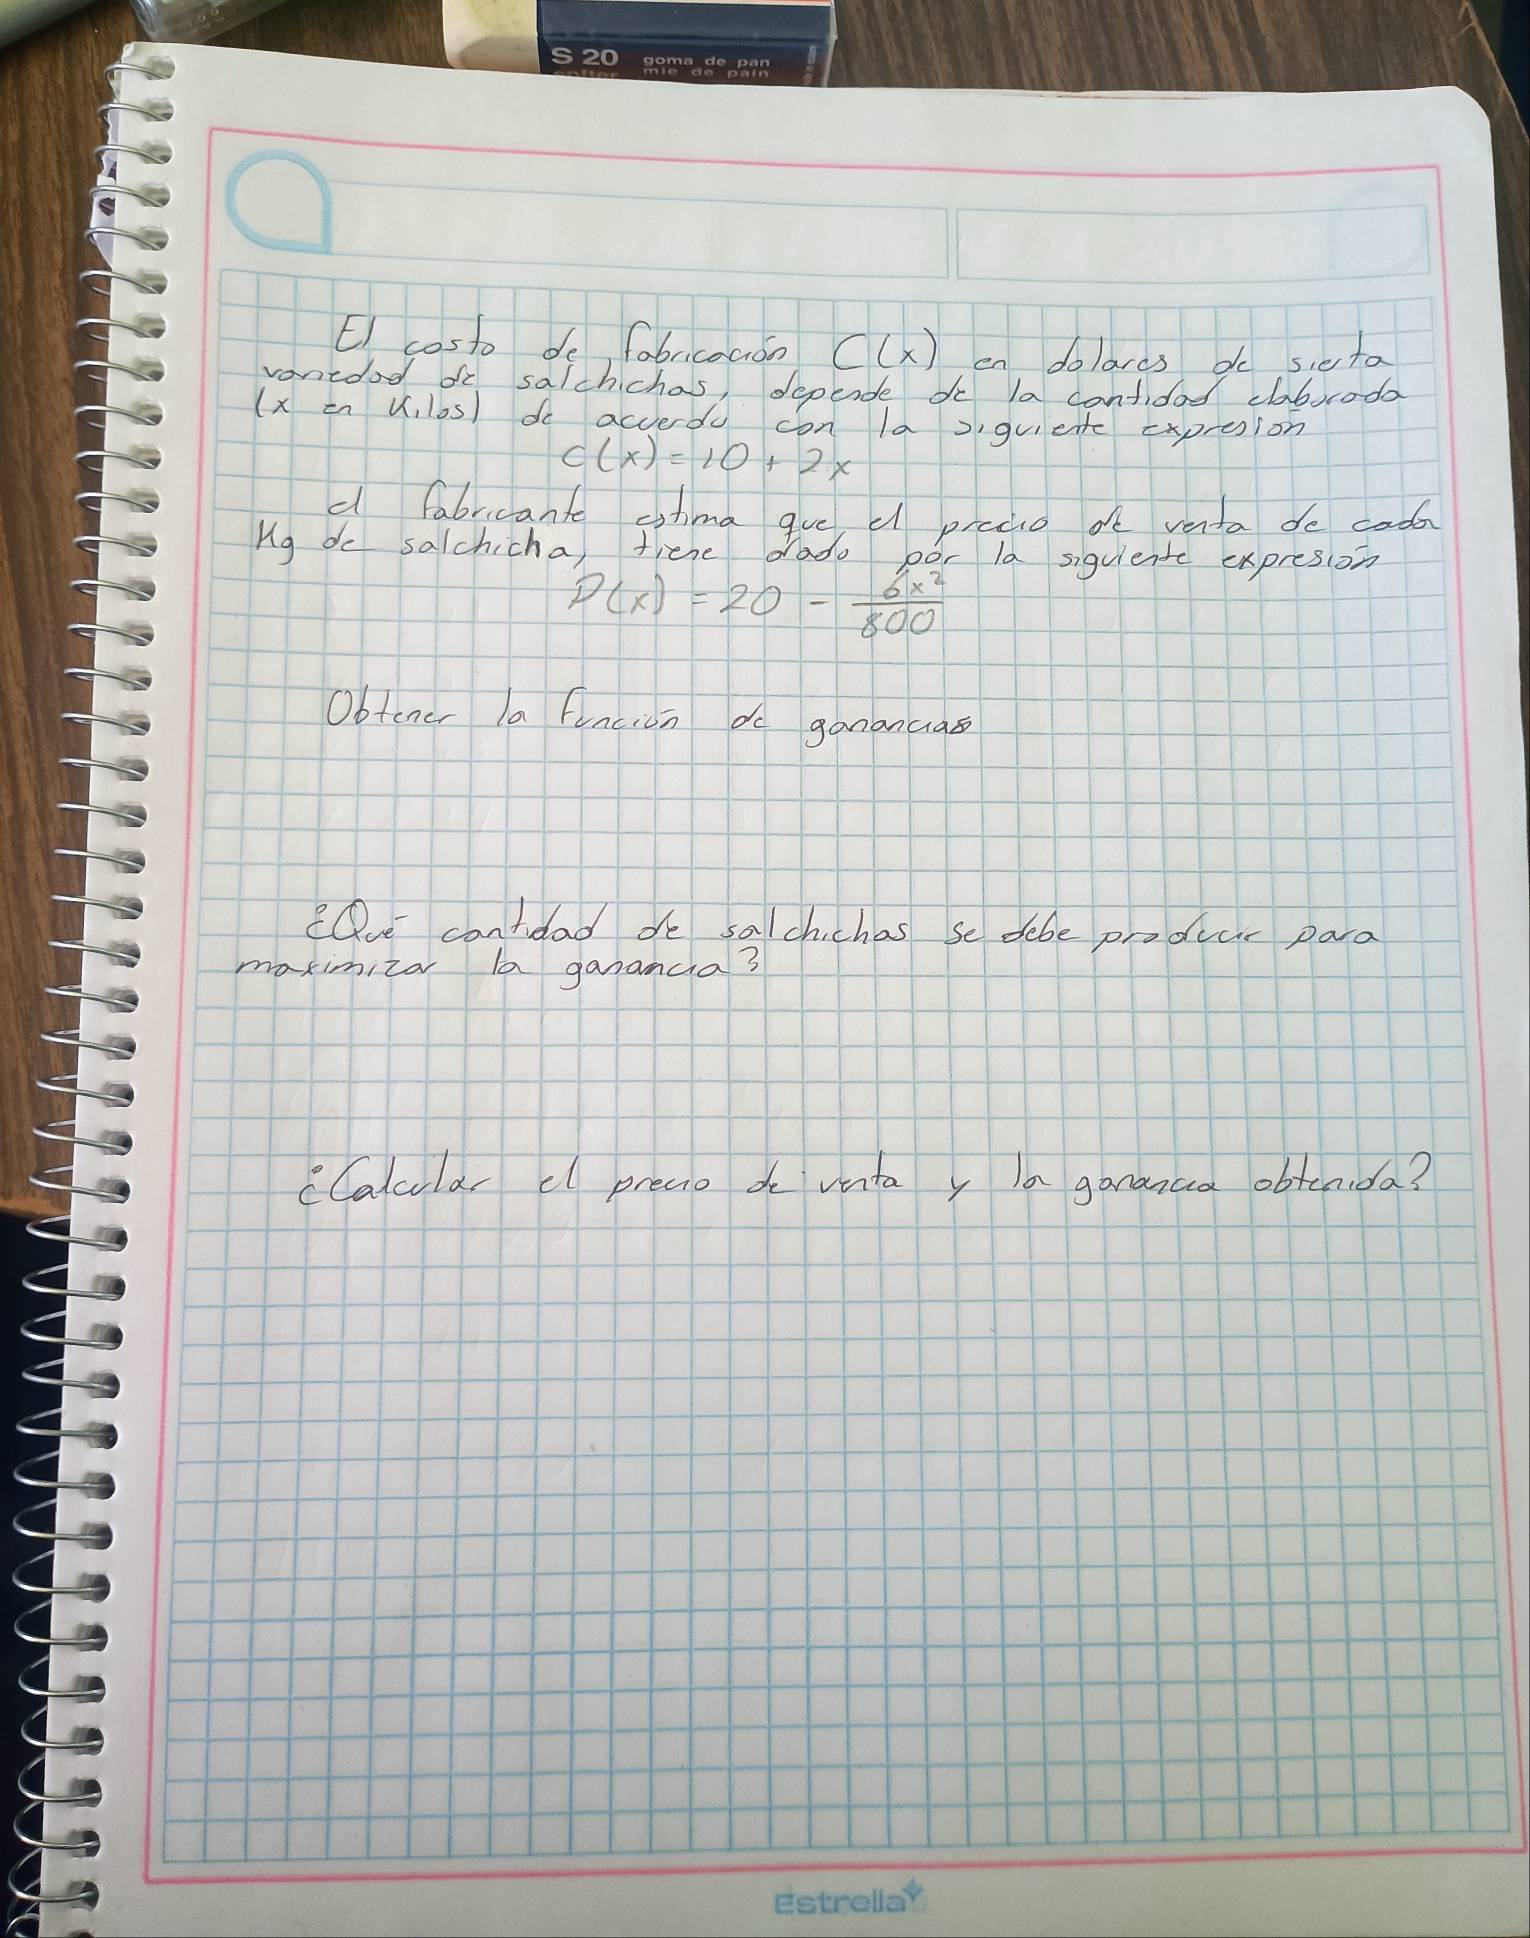 S 20 goma de pan
softer mie de pain
El costo de fabricación C(x) en dolares de sierta
variedad de salchichas, depende de la cantidad elaborada
(x en Kilos) de acuerdo con la siguiente expresión
C(x) = 10 + 2x
el fabricante estima que el precio de venta de cada
Kg de salchicha, tiene dado por la siguiente expresión
P(x) = 20 - 6x²/800
Obtener la función de ganancias
¿Qué cantidad de salchichas se debe producir para
maximizar la ganancia?
¿Calcular el precio de venta y la ganancia obtenida?
Estrella